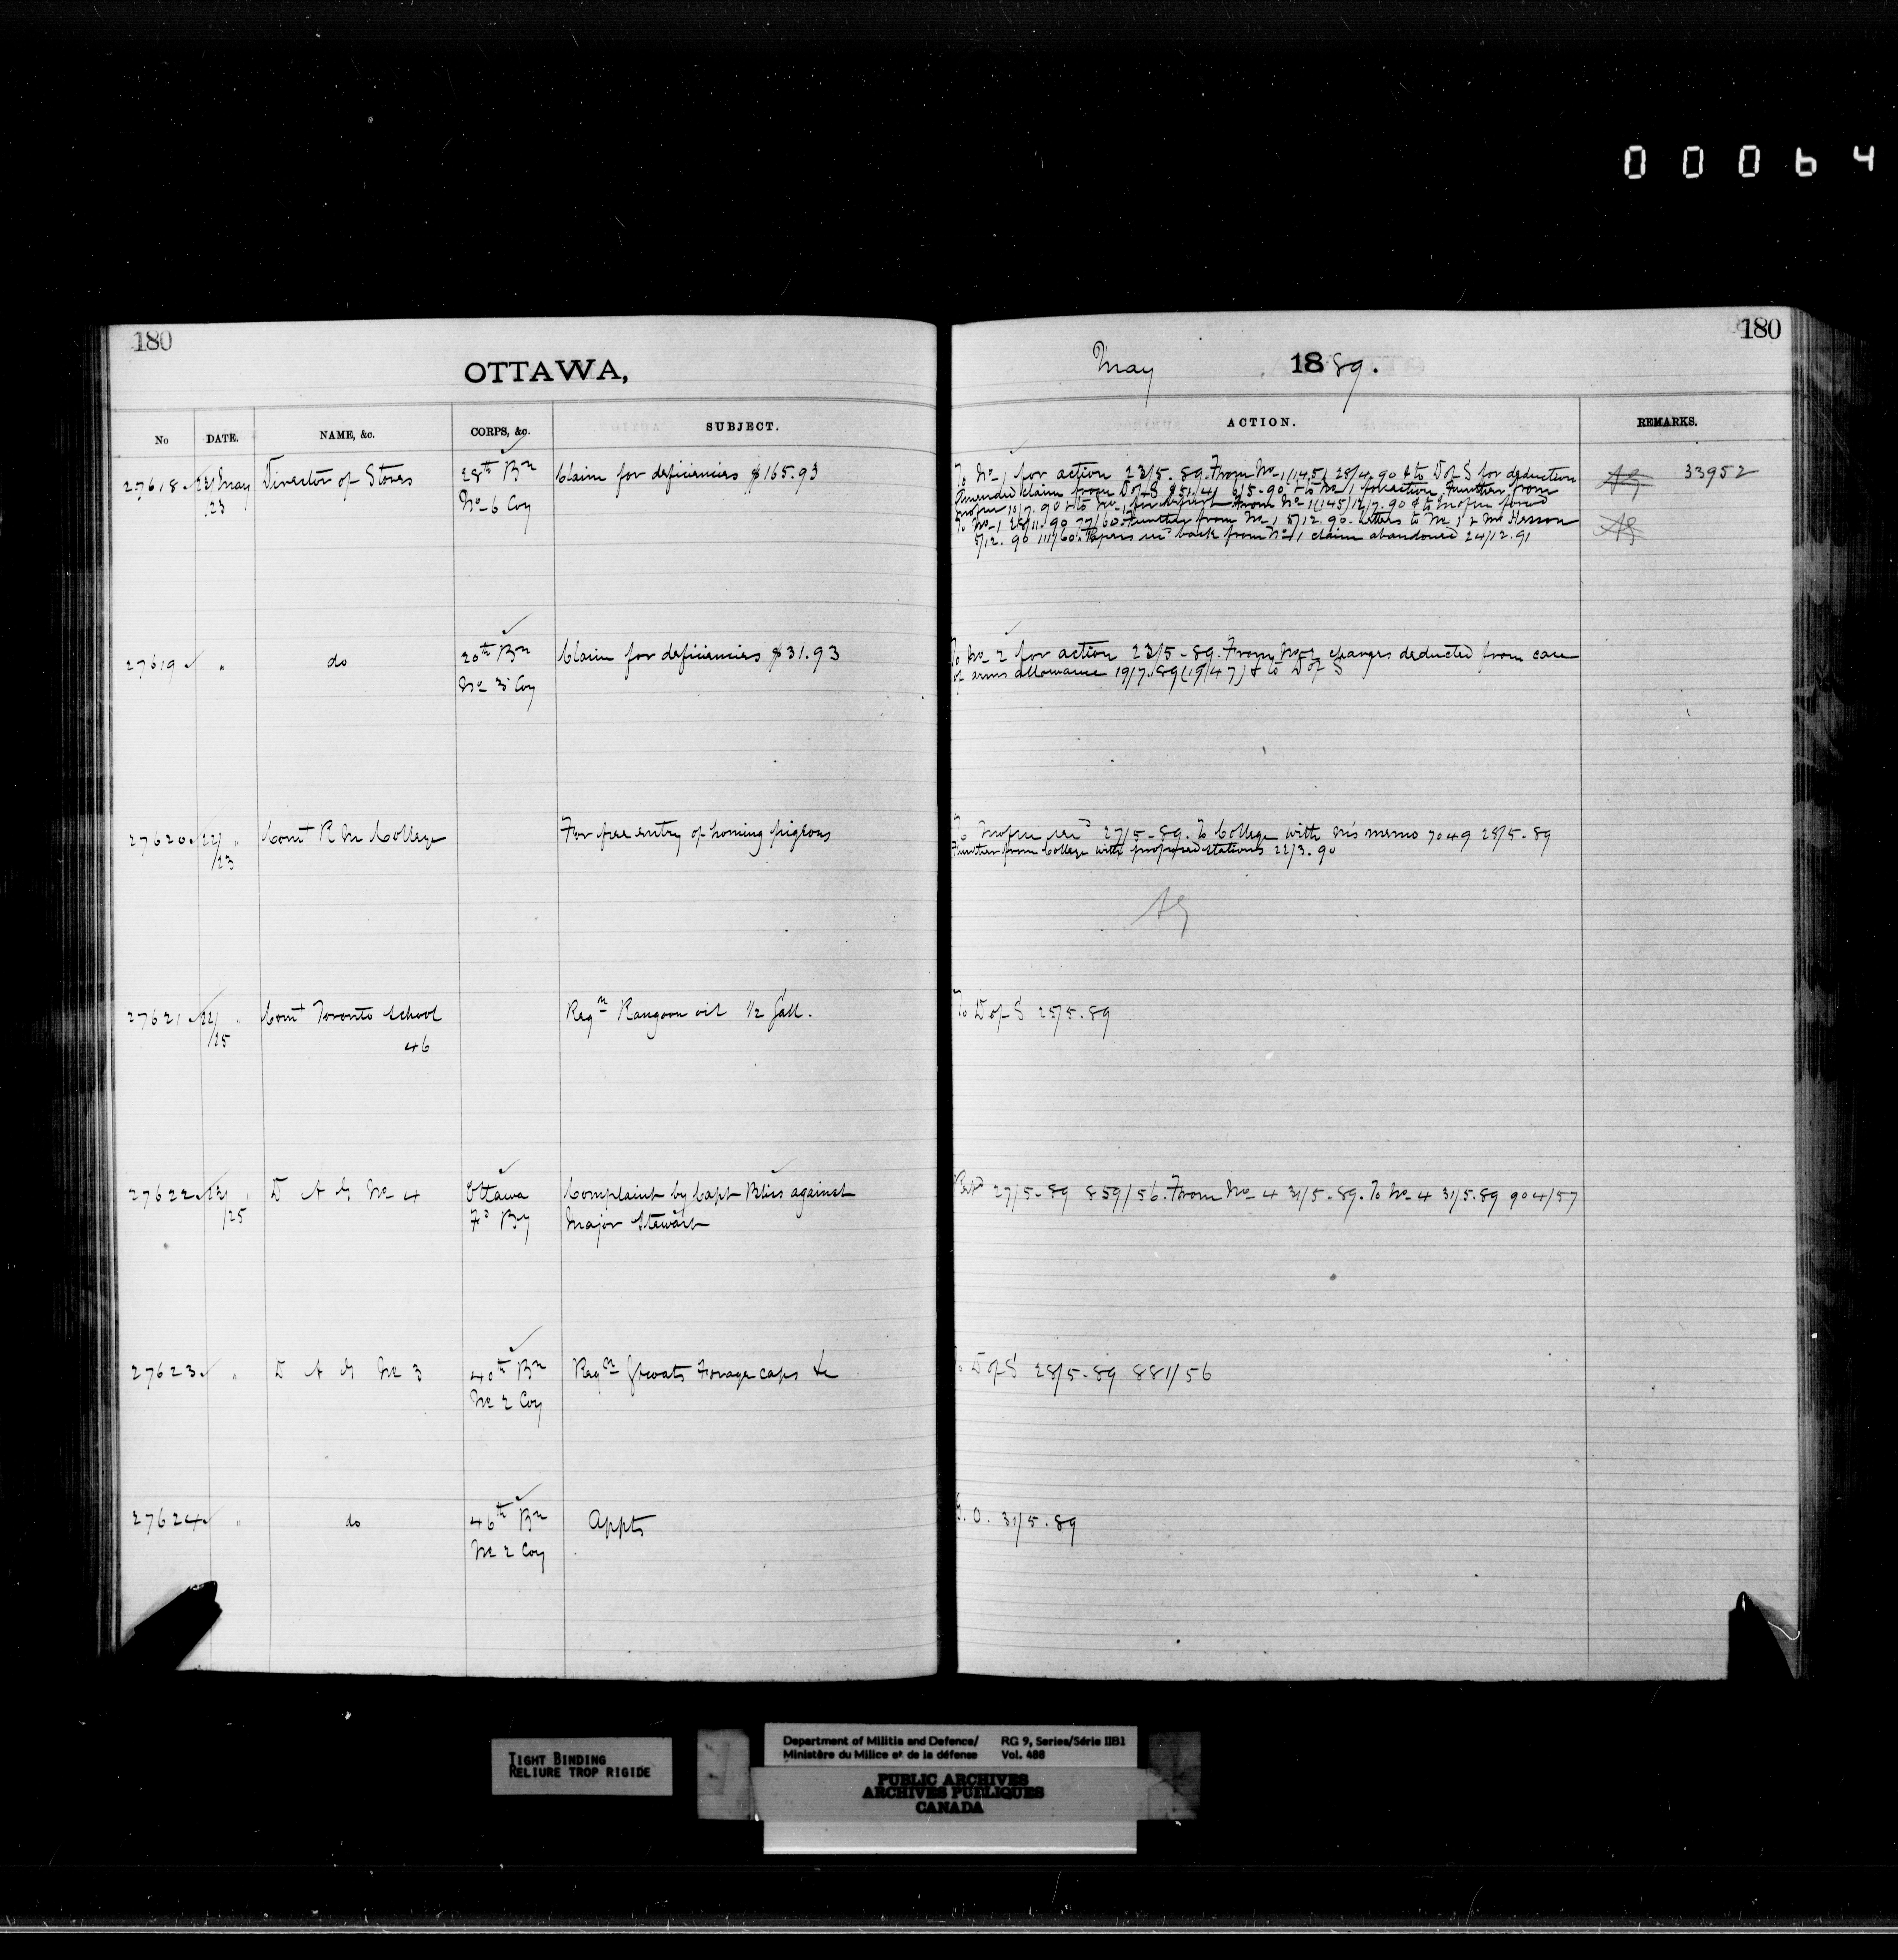 00064
180
OTTAWA,
No DATE. NAME, &c. CORPS, &c. SUBJECT.
27618 22/23 May Director of Stores 28th Bn No 6 Coy Claim for deficiencies $165.93
27619 " do 20th Bn No 3 Coy Claim for deficiencies $31.93
27620 22/23 " Comt R M College For free entry of homing pigeons
27621 22/25 " Comt Toronto School 46 Reqn Rangoon oil 1/2 Gall.
27622 23/25 " D A G No 4 Ottawa Fd By Complaint by Capt Bliss against
Major Stewart
27623 " D A G No 3 40th Bn No 2 Coy Reqn Gtcoats Forage caps &c
27624 " do 46th Bn No 2 Coy Appts
180
May 1889.
ACTION. REMARKS.
To No 1 for action 23/5.89. From No 1 (145) 28/4.90 & to D of S for deduction
Amended claim from D of S 6/5.90 & to No 1 for action. Further from
10/7.90 & to No 1 From No 1 (145) 12/7.90 & to
To No 1 28/11.90 77/60. Further from No 1 5/12.90. Letters to No 1 & Mr Hesson
5/12.90 111/60. Papers recd back from No 1 claim abandoned 24/12.91
AG 33952
AG
To No 2 for action 23/5.89. From No 2 charges deducted from care
of arms allowance 19/7.89 (19/47) & to D of S
To recd 27/5.89. To College with memo 7049 28/5.89
Further from College with proposed stations 22/3.90
AG
To D of S 25/5.89
27/5.89 859/56. From No 4 31/5.89. To No 4 31/5.89 904/57
To D of S 28/5.89 881/56
G.O. 31/5.89
TIGHT BINDING
RELIURE TROP RIGIDE
Department of Militia and Defence/ RG 9, Series/Série IIB1
Ministère du Milice et de la défense Vol. 488
PUBLIC ARCHIVES
ARCHIVES PUBLIQUES
CANADA